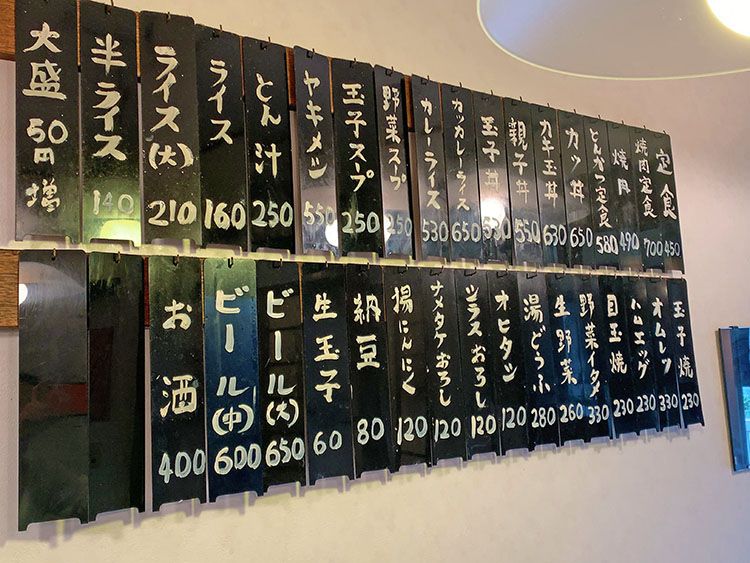 定食 450
焼肉定食 700
焼肉 490
とんかつ定食 580
カツ丼 650
カキ玉丼 630
親子丼 550
玉子丼 530
カツカレーライス 650
カレーライス 530
野菜スープ 250
玉子スープ 250
ヤキメシ 550
とん汁 250
ライス 160
ライス(大) 210
半ライス 140
大盛 50円増
玉子焼 230
オムレツ 330
ハムエッグ 230
目玉焼 230
野菜イタメ 330
生野菜 260
湯どうふ 280
オヒタシ 120
シラスおろし 120
ナメタケおろし 120
揚にんにく 120
納豆 80
生玉子 60
ビール(大) 650
ビール(中) 600
お酒 400